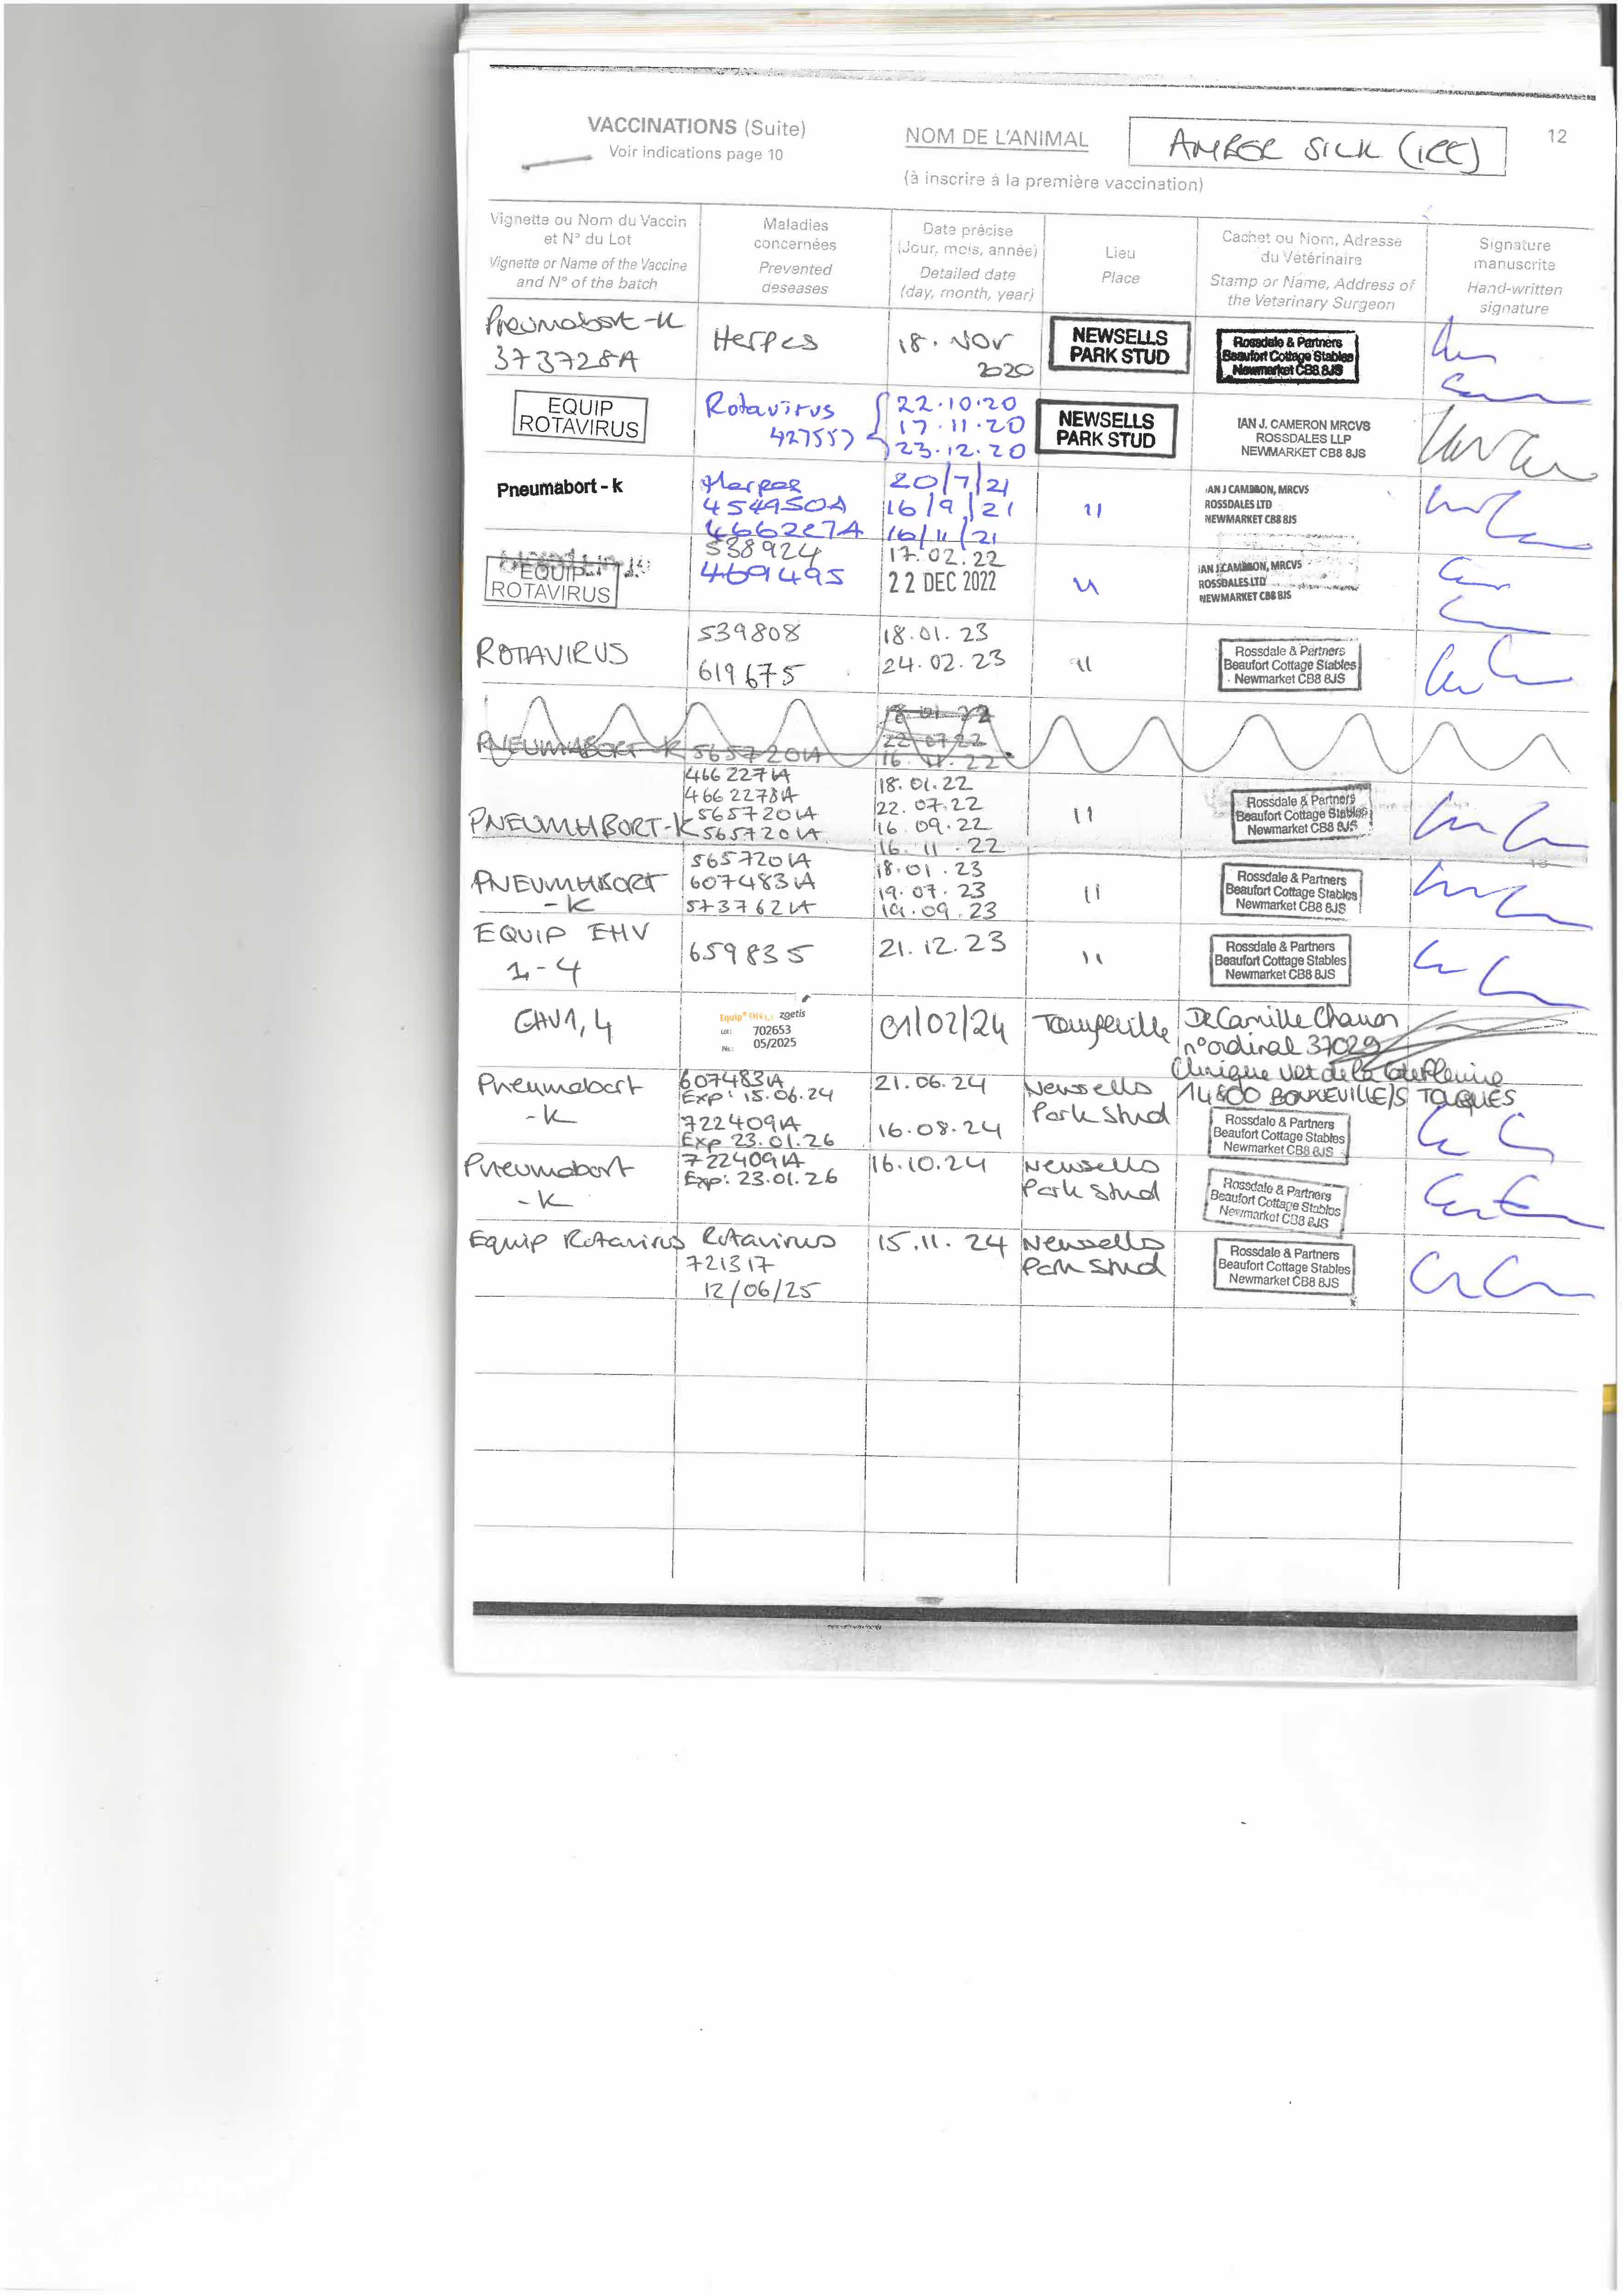 VACCINATIONS (Suite)
Voir indications page 10
NOM DE L'ANIMAL
AMBER SILK (IRE)
12
(à inscrire à la première vaccination)
Vignette ou Nom du Vaccin
et N° du Lot
Vignette or Name of the Vaccine
and N° of the batch
Maladies
concernées
Prevented
deseases
Date précise
(Jour, mois, année)
Detailed date
(day, month, year)
Lieu
Place
Cachet ou Nom, Adresse
du Vétérinaire
Stamp or Name, Address of
the Veterinary Surgeon
Signature
manuscrite
Hand-written
signature
Pneumabort-K
373728A
Herpes
18. NOV
2020
NEWSELLS
PARK STUD
Rossdale & Partners
Beaufort Cottage Stables
Newmarket CB8 8JS
EQUIP
ROTAVIRUS
Rotavirus
427557
22.10.20
17.11.20
23.12.20
NEWSELLS
PARK STUD
IAN J. CAMERON MRCVS
ROSSDALES LLP
NEWMARKET CB8 8JS
Pneumabort - k
Herpes
454950A
466227A
20/7/21
16/9/21
16/11/21
11
IAN J CAMERON, MRCVS
ROSSDALES LTD
NEWMARKET CB8 8JS
EQUIP
ROTAVIRUS
538924
469495
17.02.22
22 DEC 2022
11
IAN J CAMERON, MRCVS
ROSSDALES LTD
NEWMARKET CB8 8JS
ROTAVIRUS
539808
619675
18.01.23
24.02.23
11
Rossdale & Partners
Beaufort Cottage Stables
Newmarket CB8 8JS
PNEUMABORT-K
5657201A
18 01 22
22 07 22
16. 11. 22
PNEUMABORT-K
4662271A
46622781A
5657201A
5657201A
18.01.22
22.07.22
16.09.22
16.11.22
11
Rossdale & Partners
Beaufort Cottage Stables
Newmarket CB8 8JS
13
PNEUMABORT
-K
5657201A
6074831A
5737621A
18.01.23
19.07.23
19.09.23
11
Rossdale & Partners
Beaufort Cottage Stables
Newmarket CB8 8JS
EQUIP EHV
1-4
659835
21.12.23
11
Rossdale & Partners
Beaufort Cottage Stables
Newmarket CB8 8JS
EHV1,4
Equip® EHV1,4 zoetis
Lot: 702653
05/2025
01/02/24
Tourgeville
Dr Camille Chauon
n° ordinal 37029
Clinique vet de la Côte Fleurie
14800 BONNEVILLE/S TOUQUES
Pneumabort
-K
6074831A
Exp: 15.06.24
7224091A
Exp 23.01.26
21.06.24
16.08.24
Newsells
Park Stud
Rossdale & Partners
Beaufort Cottage Stables
Newmarket CB8 8JS
Pneumabort
-K
7224091A
Exp: 23.01.26
16.10.24
Newsells
Park Stud
Rossdale & Partners
Beaufort Cottage Stables
Newmarket CB8 8JS
Equip Rotavirus
Rotavirus
721317
12/06/25
15.11.24
Newsells
Park Stud
Rossdale & Partners
Beaufort Cottage Stables
Newmarket CB8 8JS